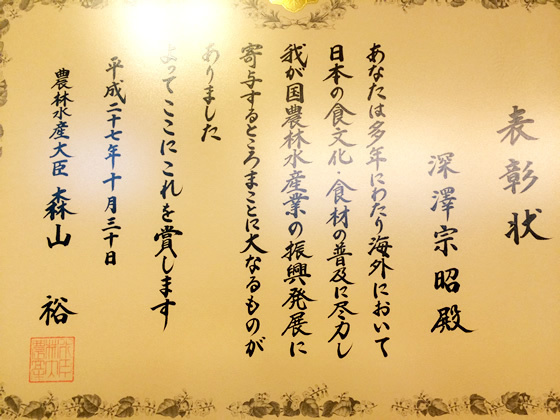 表彰状
深澤宗昭殿
あなたは多年にわたり海外において
日本の食文化・食材の普及に尽力し
我が国農林水産業の振興発展に
寄与するところまことに大なるものが
ありました
よってここにこれを賞します
平成二十七年十月三十日
農林水産大臣 森山 裕